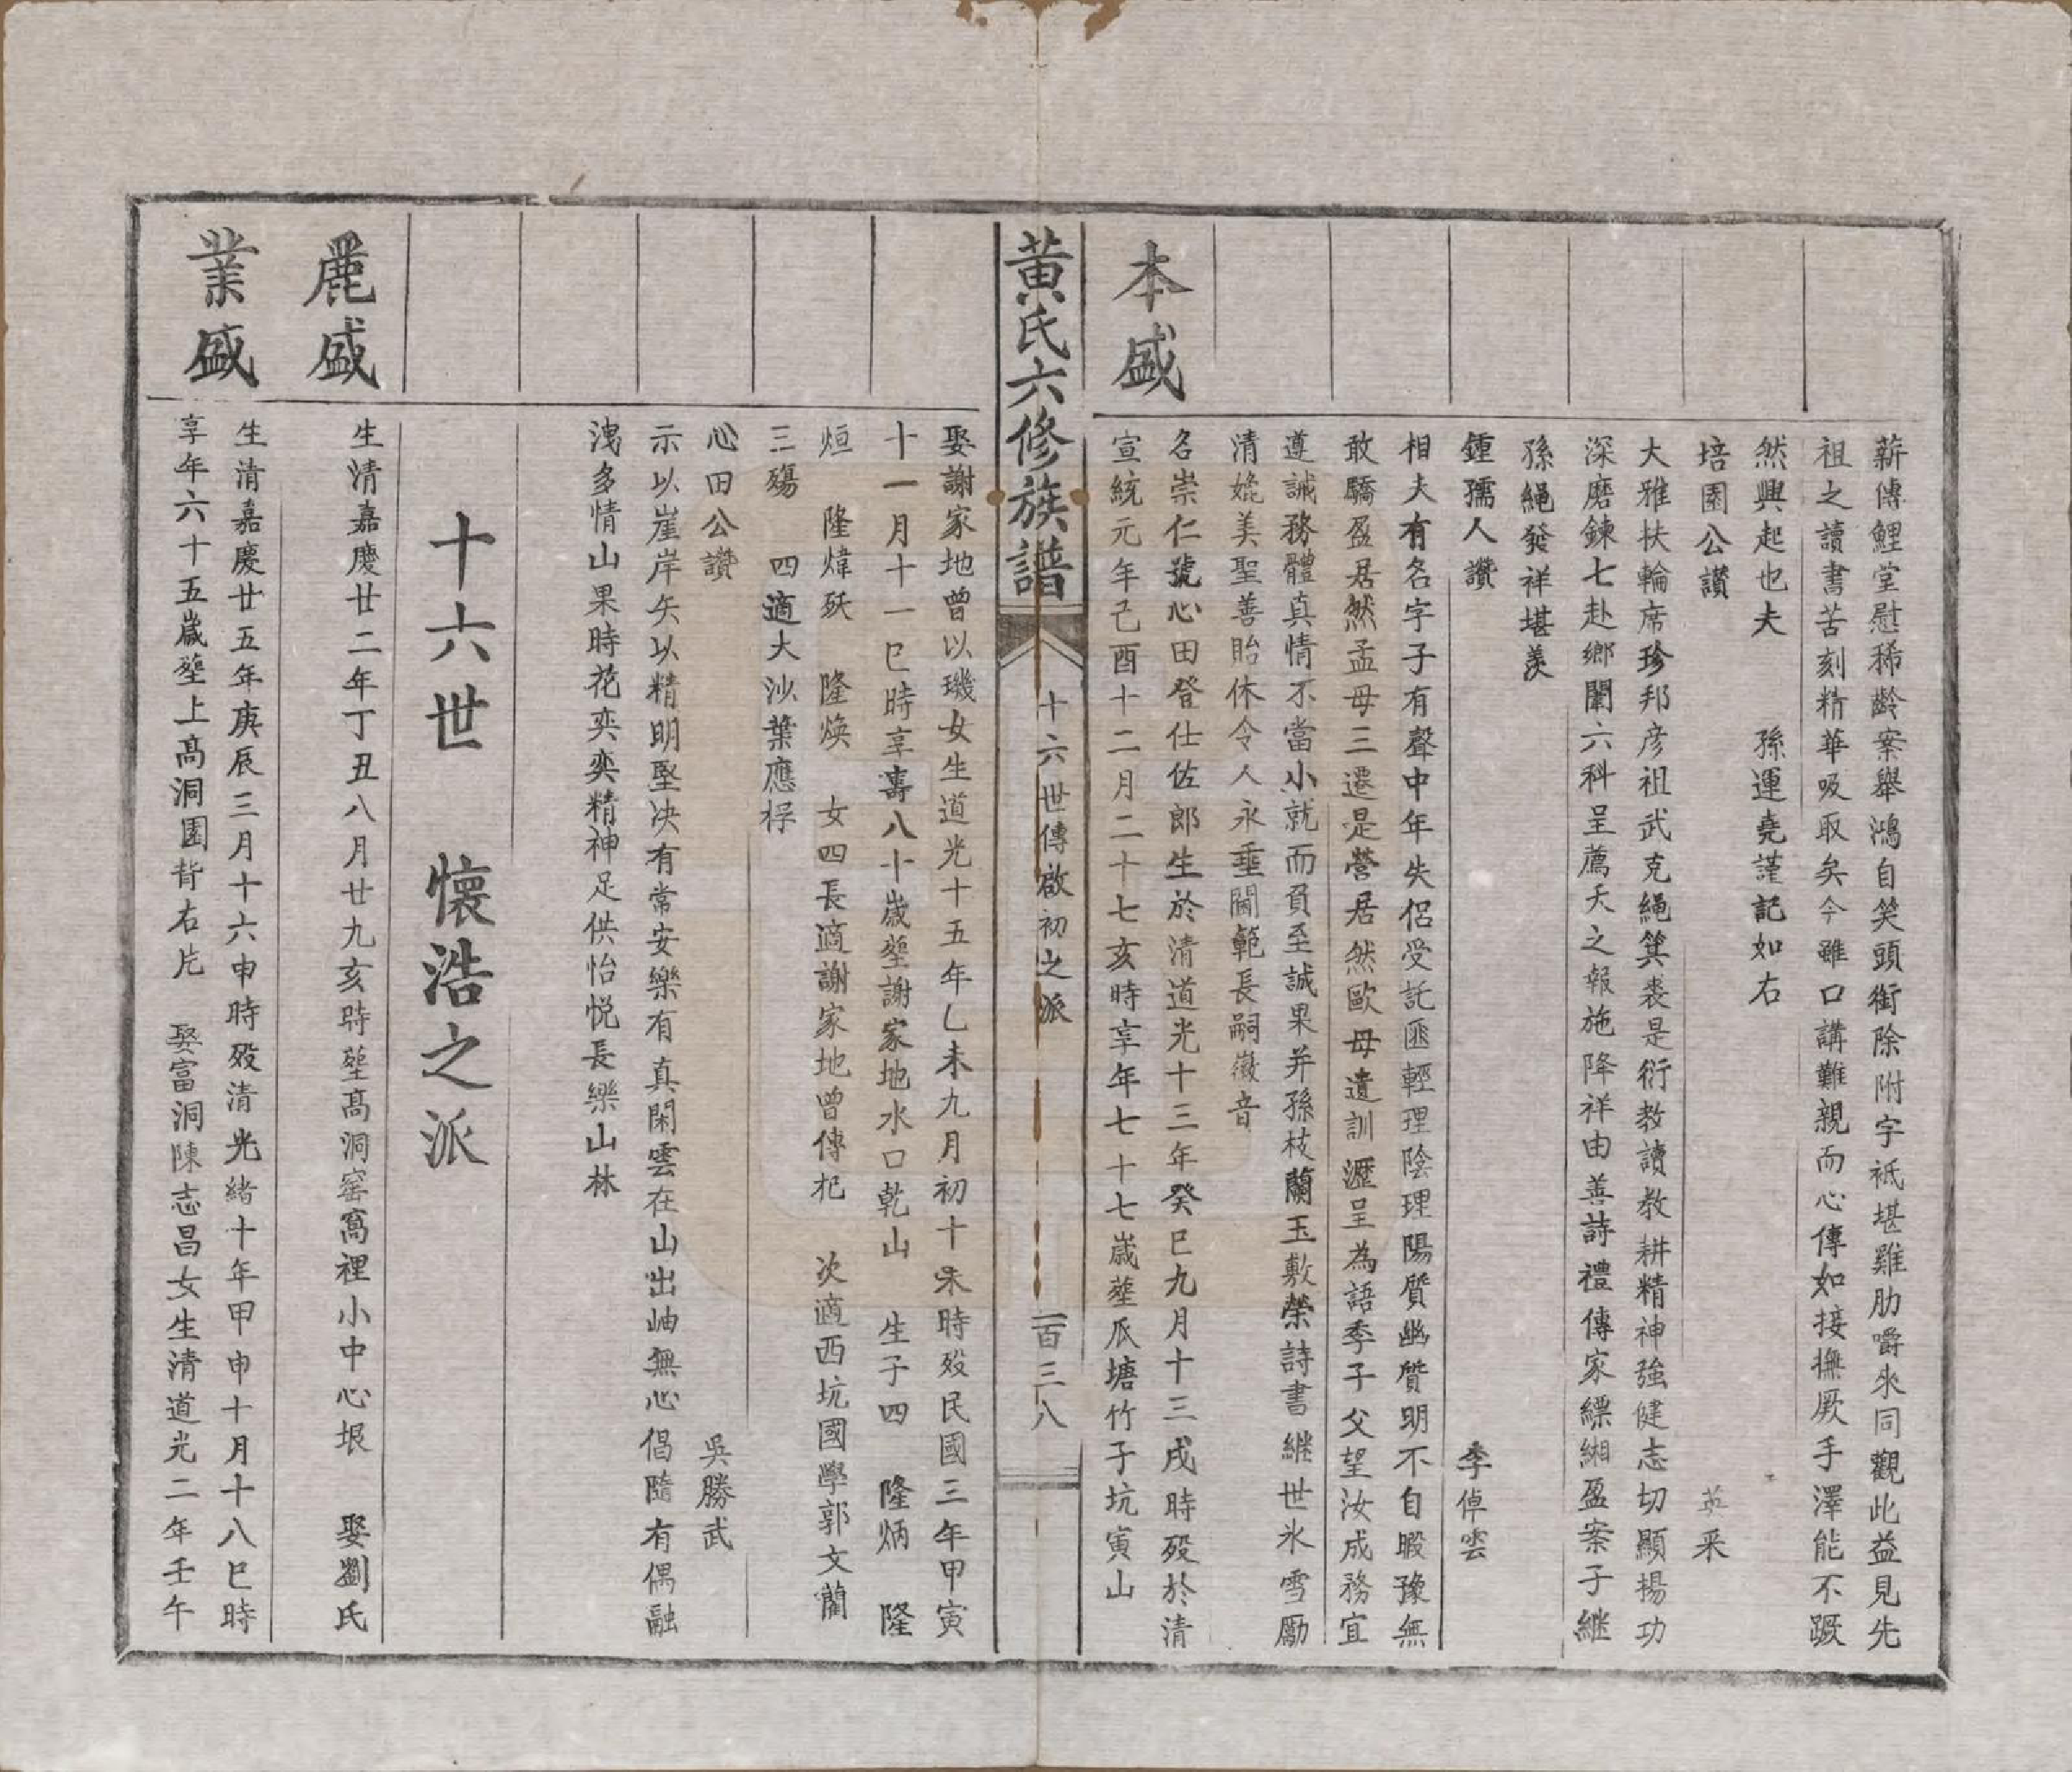 薪傳鯉堂慰稀齡案舉鴻自笑頭銜除附字祗堪雞肋嚼來同觀此益見先
祖之讀書苦刻精華吸取矣今雖口講難親而心傳如接撫厥手澤能不蹶
然興起也夫　孫運堯謹記如右
培園公讚　英采
大雅扶輪席珍邦彦祖武克繩箕裘是衍教讀教耕精神強健志切顯揚功
深磨鍊七赴鄉闈六科呈薦天之報施降祥由善詩禮傳家縹緗盈案子繼
孫繩發祥堪羨
鍾孺人讚　李倬雲
相夫有名字子有聲中年失侶受託匪輕理陰理陽質幽質明不自暇豫無
敢驕盈居然孟母三遷是營居然歐母遺訓瀝呈為語季子父望汝成務宜
遵誡務體真情不當小就而負至誠果并孫枝蘭玉敷榮詩書繼世氷雪勵
清媲美聖善貽休令人永垂閫範長嗣徽音
本盛
名崇仁號心田登仕佐郎生於清道光十三年癸巳九月十三戌時殁於清
宣統元年己酉十二月二十七亥時享年七十七歲塟瓜塘竹子坑寅山
黃氏六修族譜　十六世傳啟初之派　一百三八
娶謝家地曾以璣女生道光十五年乙未九月初十未時殁民國三年甲寅
十一月十一巳時享壽八十歲塟謝家地水口乾山　生子四　隆炳　隆
烜　隆煒殀　隆煥　女四長適謝家地曾傳杞　次適西坑國學郭文蘭
三殤　四適大沙葉應桴
心田公讚　吳勝武
示以崖岸矢以精明堅決有常安樂有真閑雲在山出岫無心倡隨有偶融
洩多情山果時花奕奕精神足供怡悦長樂山林
十六世　懷浩之派
麗盛
生清嘉慶廿二年丁丑八月廿九亥時塟高洞窑窩裡小中心垠　娶劉氏
業盛
生清嘉慶廿五年庚辰三月十六申時殁清光緒十年甲申十月十八巳時
享年六十五歲塟上高洞園背右片　娶富洞陳志昌女生清道光二年壬午